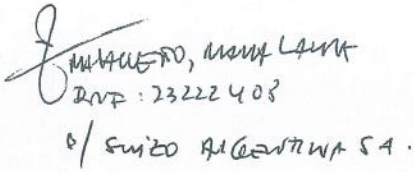 MARIA LAURA
DNI: 23222408
P/ SUIZO ARGENTINA SA.